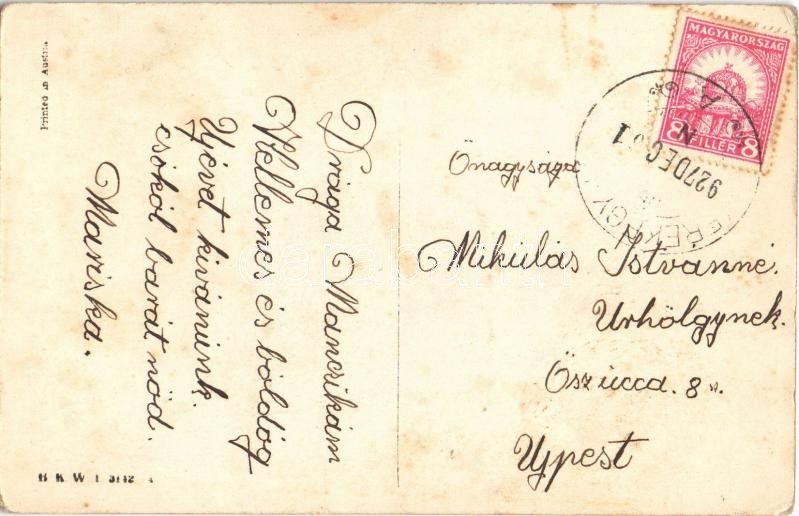 Printed in Austria
Drága Manczikám
Kellemes és bóldóg
Ujévet kivánunk.
csókól barát nőd.
Mariska.
B K W I
MAGYARORSZÁG
8 FILLÉR 8
927 DEC 31
N
Őnagysága
Mikulás Istvánné.
Urhölgynek.
Ősz ucca. 8
Ujpest